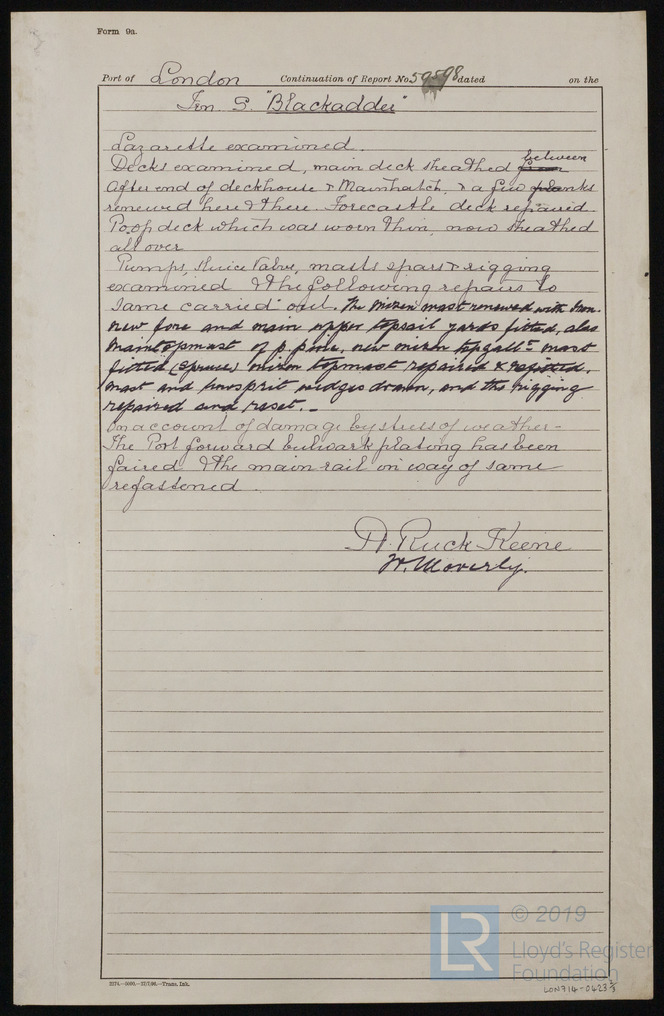 Form 9a.
Port of London Continuation of Report No. 59598 dated on the
Irn S. "Blackadder"
Lazarette examined.
Decks examined, main deck sheathed from between
After end of deckhouse & Mainhatch, & a few planks
renewed here & there. Forecastle deck repaired
Poop deck which was worn thin, now sheathed
all over
Pumps, Sluice Valve, masts spars & rigging
examined & the following repairs to
same carried out. The mizen mast renewed with Iron.
new fore and main upper topsail yards fitted, also
maintopmast of p. pine, new mizen topgallt mast
fitted (spruce) mizen topmast repaired & refitted.
mast and bowsprit wedges drawn, and the rigging
repaired and reset. -
On account of damage by stress of weather -
The Port forward bulwark plating has been
faired & the main rail in way of same
refastened.
A. Ruck Keene
W. Moverly.
© 2019
LR Lloyd's Register
Foundation
LON714-0423